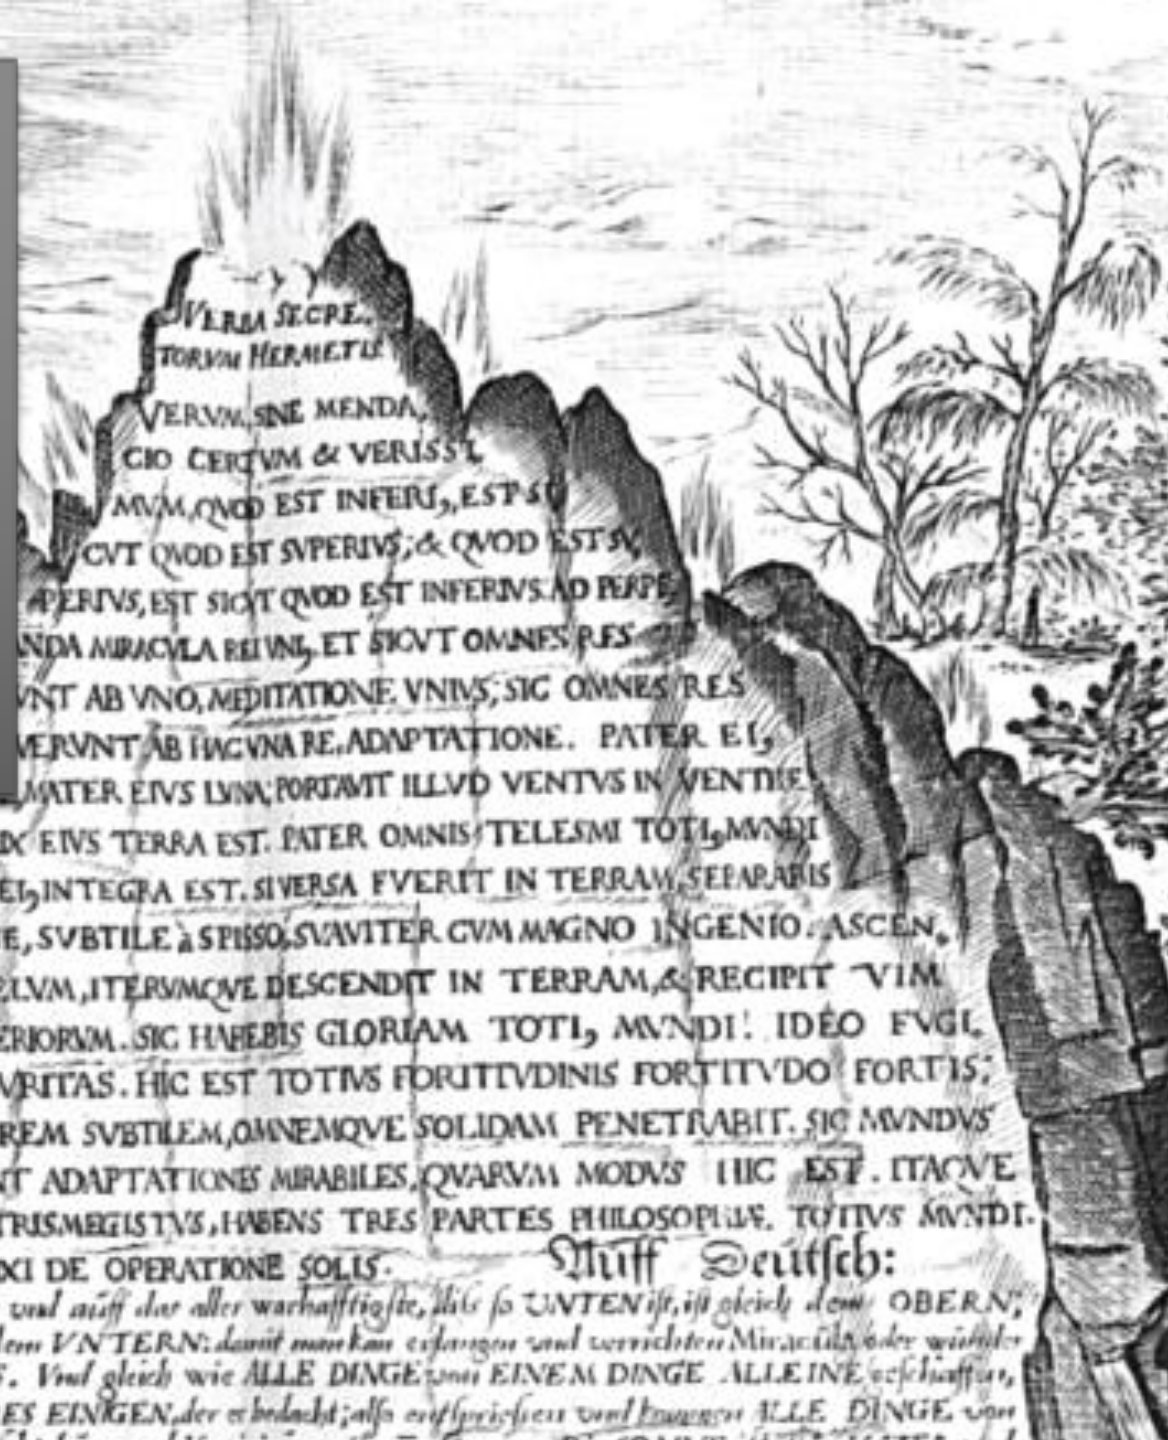 VERBA SECRE,
TORVM HERMETIS
VERVM, SINE MENDA,
CIO CERTVM & VERISSI,
MVM, QVOD EST INFERI9, EST SI
CVT QVOD EST SVPERIVS; & QVOD EST SV,
PERIVS, EST SICVT QVOD EST INFERIVS. AD PERPE,
NDA MIRACVLA REI VNI9, ET SICVT OMNES RES
VNT AB VNO, MEDITATIONE VNIVS, SIC OMNES RES
VERVNT AB HAC VNA RE, ADAPTATIONE. PATER EI9
MATER EIVS LVNA; PORTAVIT ILLVD VENTVS IN VENTRE
IX EIVS TERRA EST. PATER OMNIS TELESMI TOTI9 MVNDI
EI9 INTEGRA EST. SI VERSA FVERIT IN TERRAM, SEPARABIS
E, SVBTILE à SPISSO, SVAVITER CVM MAGNO INGENIO. ASCEN,
ELVM, ITERVMQVE DESCENDIT IN TERRAM, & RECIPIT VIM
ERIORVM. SIC HABEBIS GLORIAM TOTI9 MVNDI. IDEO FVGI,
VRITAS. HIC EST TOTIVS FORTITVDINIS FORTITVDO FORTIS;
REM SVBTILEM, OMNEMQVE SOLIDAM PENETRABIT. SIC MVNDVS
NT ADAPTATIONES MIRABILES, QVARVM MODVS HIC EST. ITAQVE
TRISMEGISTVS, HABENS TRES PARTES PHILOSOPHIÆ TOTIVS MVNDI.
XI DE OPERATIONE SOLIS.
Auff Deutsch:
und auff das aller warhafftigste, diß so VNTEN ist, ist gleich dem OBERN;
dem VNTERN: damit man kan erlangen und verrichten Miracula oder wunder
Vnd gleich wie ALLE DINGE von EINEM DINGE ALLEINE geschaffen,
ES EINIGEN, der es bedacht; also entspriessen und kommen ALLE DINGE von